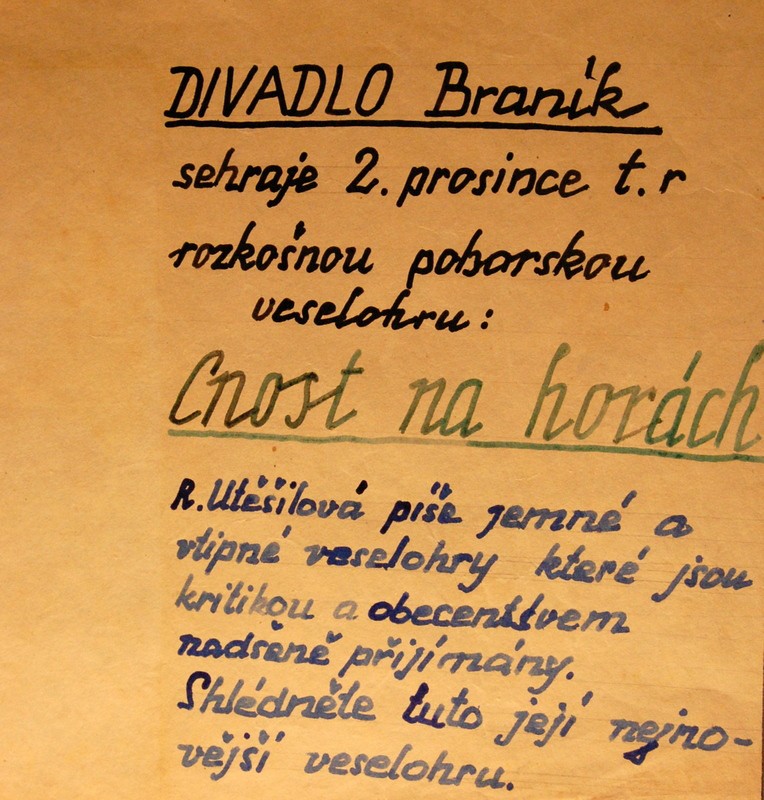 DIVADLO Braník
sehraje 2. prosince t. r
rozkošnou poharskou
veselohru:
Cnost na horách
R. Utěšilová píše jemné a
vtipné veselohry které jsou
kritikou a obecenstvem
nadšeně přijímány.
Shlédněte tuto její nejno-
vější veselohru.